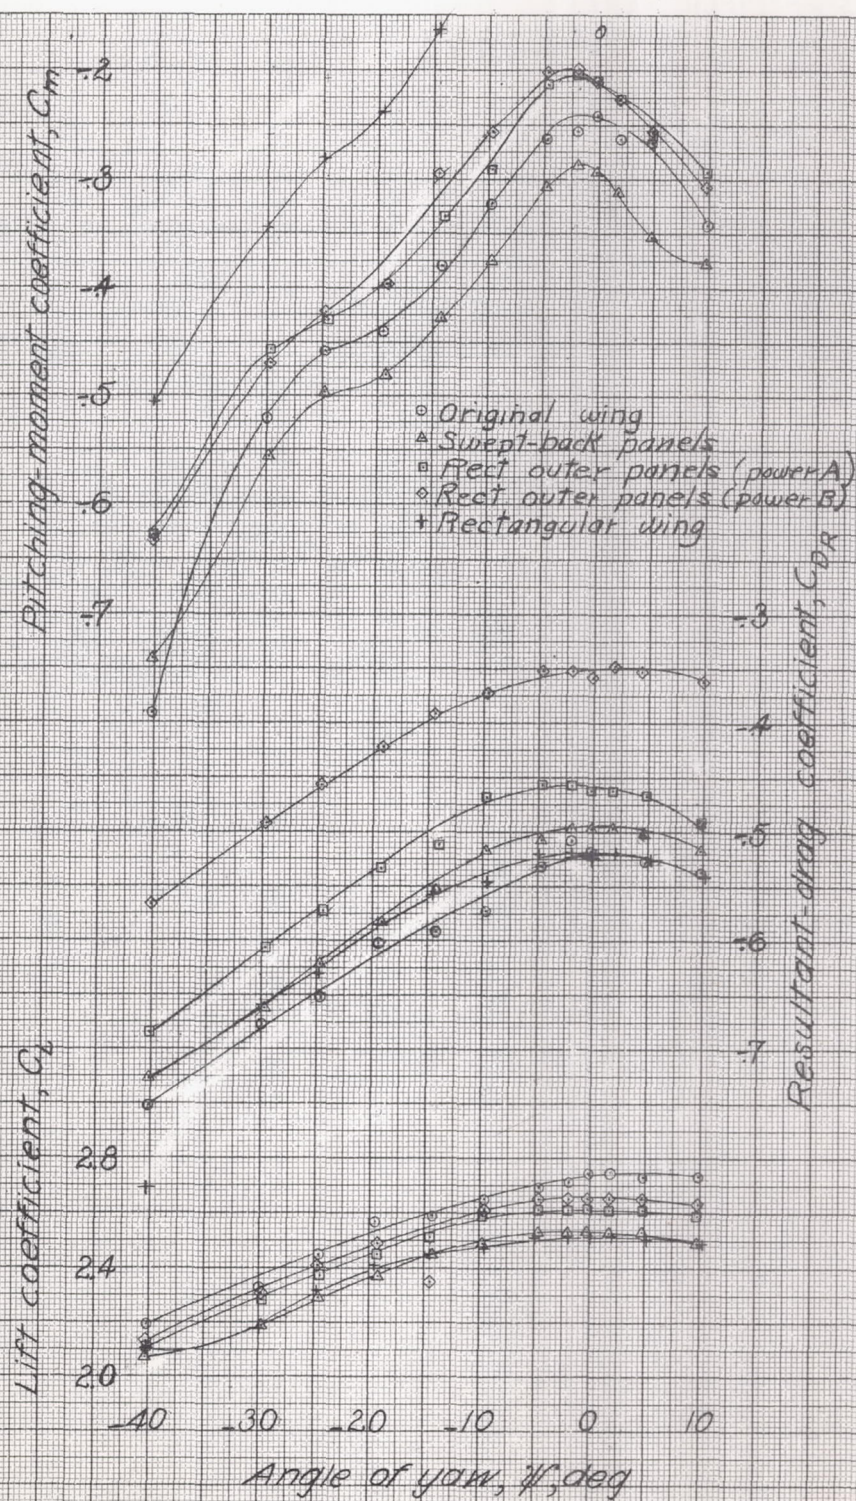 Pitching-moment coefficient, Cm
-.2
-.3
-.4
-.5
-.6
-.7
Original wing
Swept-back panels
Rect outer panels (power A)
Rect outer panels (power B)
Rectangular wing
Resultant-drag coefficient, CDR
-.3
-.4
-.5
-.6
-.7
Lift coefficient, CL
2.8
2.4
2.0
-40 -30 -20 -10 0 10
Angle of yaw, ψ, deg